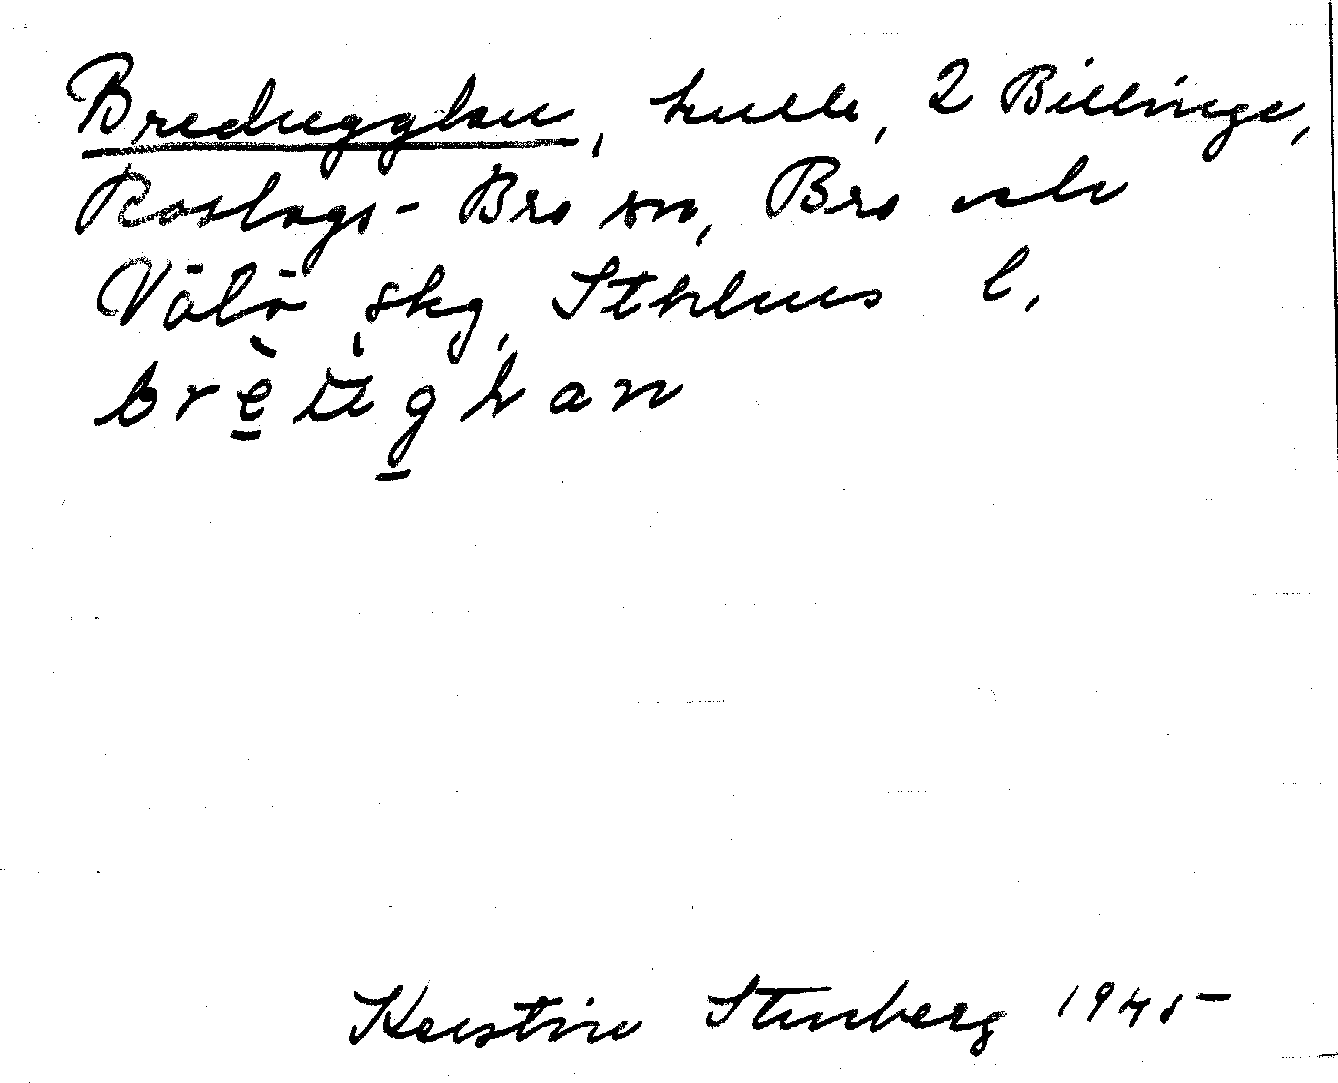 Breduggkan, kulle, 2 Billinge,
Roslags-Bro sn, Bro och
Vätö skg, Sthlms l.
brèu̇gkan
Kerstin Stenberg 1945